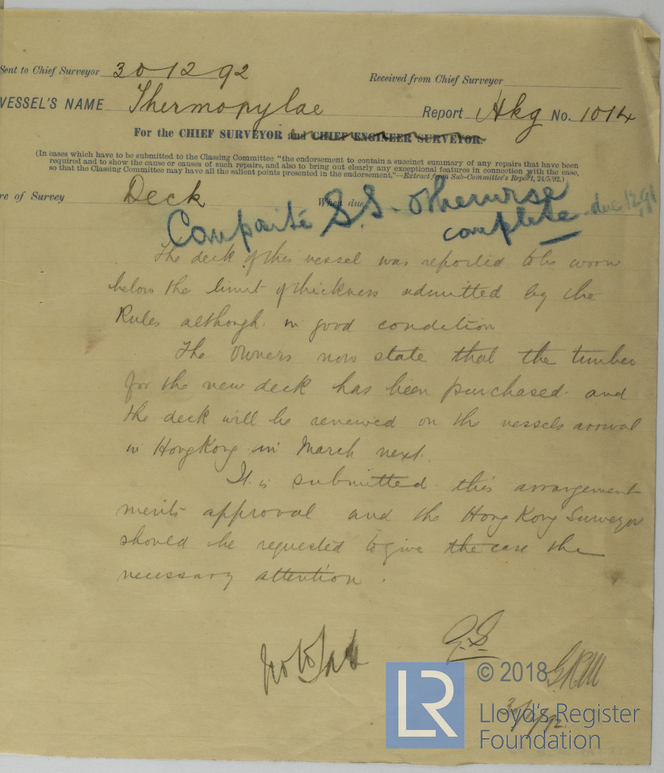 Sent to Chief Surveyor 30 12 92
Received from Chief Surveyor
VESSEL'S NAME Thermopylae Report Hkg No. 1014
For the CHIEF SURVEYOR and CHIEF ENGINEER SURVEYOR.
(In cases which have to be submitted to the Classing Committee "the endorsement to contain a succinct summary of any repairs that have been
required and to show the cause or causes of such repairs, and also to bring out clearly any exceptional features in connection with the case,
so that the Classing Committee may have all the salient points presented in the endorsement."—Extract from Sub-Committee's Report, 24/5/92.)
re of Survey Deck When due
Composite S.S. otherwise
complete due 12.91
The deck of this vessel was reported to be worn
below the limit of thickness admitted by the
Rules although in good condition
The Owners now state that the timber
for the new deck has been purchased and
the deck will be renewed on the vessels arrival
in Hong Kong in March next.
It is submitted this arrangement
merits approval and the Hong Kong Surveyor
should be requested to give the case the
necessary attention.
LR
© 2018
Lloyd's Register
Foundation